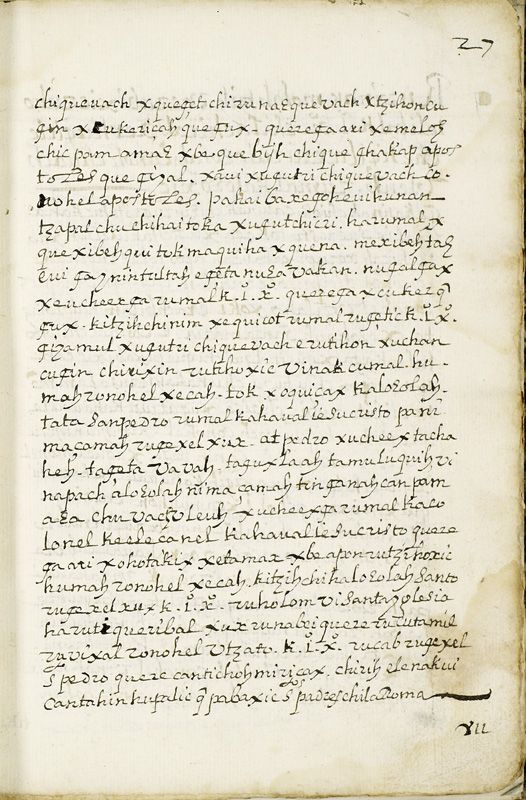 27
chique vach xqueget chirunaεque vach xtzihon cu
gin xcukericah que gux. querega ari xemeloh
chic pam amaε xbe que bijh chique ghakap apos
toles que gizal. xavi xugutri chique vach co
nohel apostoles. pa hai baxe gohe vi hunan
tzapal chuchihai toka xugut chicri. harumal x
que xibeh qui tok maquiha xquena. mexibeh tah
yvi gaz nin tultah egeta nuεa vakan. nugalgax
xeucheexga rumal k. I. X. querega xcukerq
gux. kitzih chirum xequicot rumal rugetic k. I. X.
gizamul xugutri chique vach e rutihon xuchan
cugin chirixin rutihoxic vinak cumal. hu
mah ronohel xecah. tok xoquicax kaloεolah
tata San pedro rumal kahaual iesucristo pa ni
ma camah rugexel xux. at pedro xucheex tacha
heh. tageta vavah. tagux laah tamuluquih vi
napach aloεolah nima camah tin ganah can pam
aεa chu vach vleuh, xucheexga rumal kaco
lonel keelecanel kahaual iesucristo quere
ga ari xohotakix xetamax xbe apon rutzihoxic
humah ronohel xecah. kitzih chi haloεolah Santo
rugexel xux k. I. X. ruholom vi Santa yglesia
harutiqueribal xux runabei quere ru cutamil
ruvixal ronohel vtzato. k. I. X. rucab rugexel
S. pedro quere cantichoh miricax. chirih elenak vi
cantahin hupalic q pabaxic SS padres chila Roma
xii